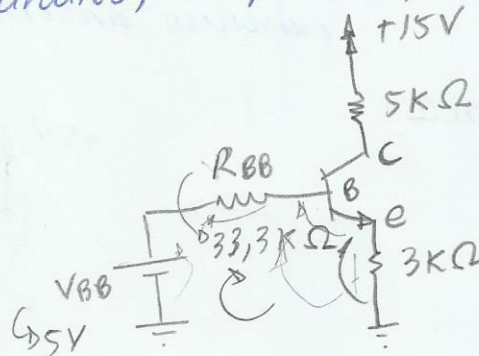 +15V
5KΩ
C
RBB
B
e
33,3KΩ
3KΩ
VBB
↳5V